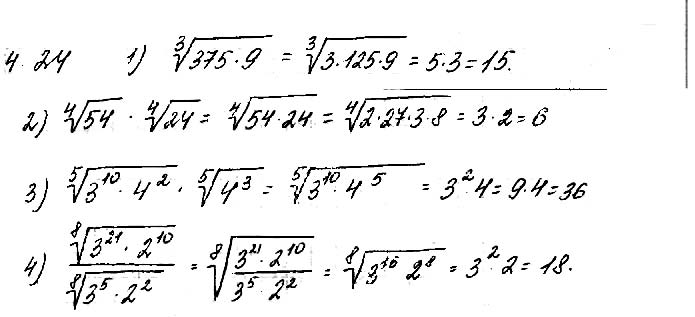 4.24 1) ∛(375·9) = ∛(3·125·9) = 5·3=15.
2) ∜54 · ∜24 = ∜(54·24) = ∜(2·27·3·8) = 3·2=6
3) ⁵√(3¹⁰·4²) · ⁵√(4³) = ⁵√(3¹⁰·4⁵) = 3²·4=9·4=36
4) ⁸√(3²¹·2¹⁰) / ⁸√(3⁵·2²) = ⁸√((3²¹·2¹⁰)/(3⁵·2²)) = ⁸√(3¹⁶ 2⁸) = 3²·2=18.